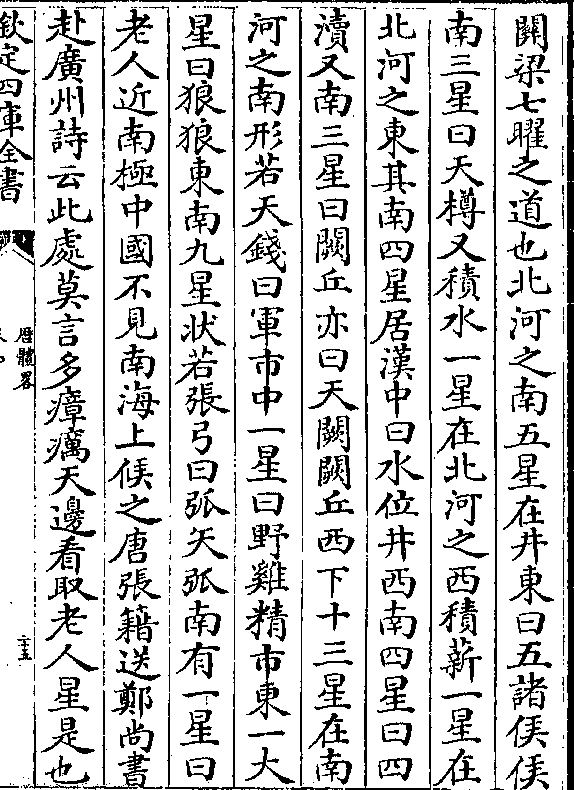 闗梁七曜之道也北河之南五星在井東曰五諸侯侯
南三星曰天樽又積水一星在北河之西積薪一星在
北河之東其南四星居漢中曰水位井西南四星曰四
瀆又南三星曰闕丘亦曰天闕闕丘西下十三星在南
河之南形若天錢曰軍市中一星曰野雞精市東一大
星曰狼狼東南九星狀若張弓曰弧矢弧南有一星曰
老人近南極中國不見南海上候之唐張籍送鄭尚書
赴廣州詩云此處莫言多瘴癘天邊看取老人星是也
欽定四庫全書
厯體畧